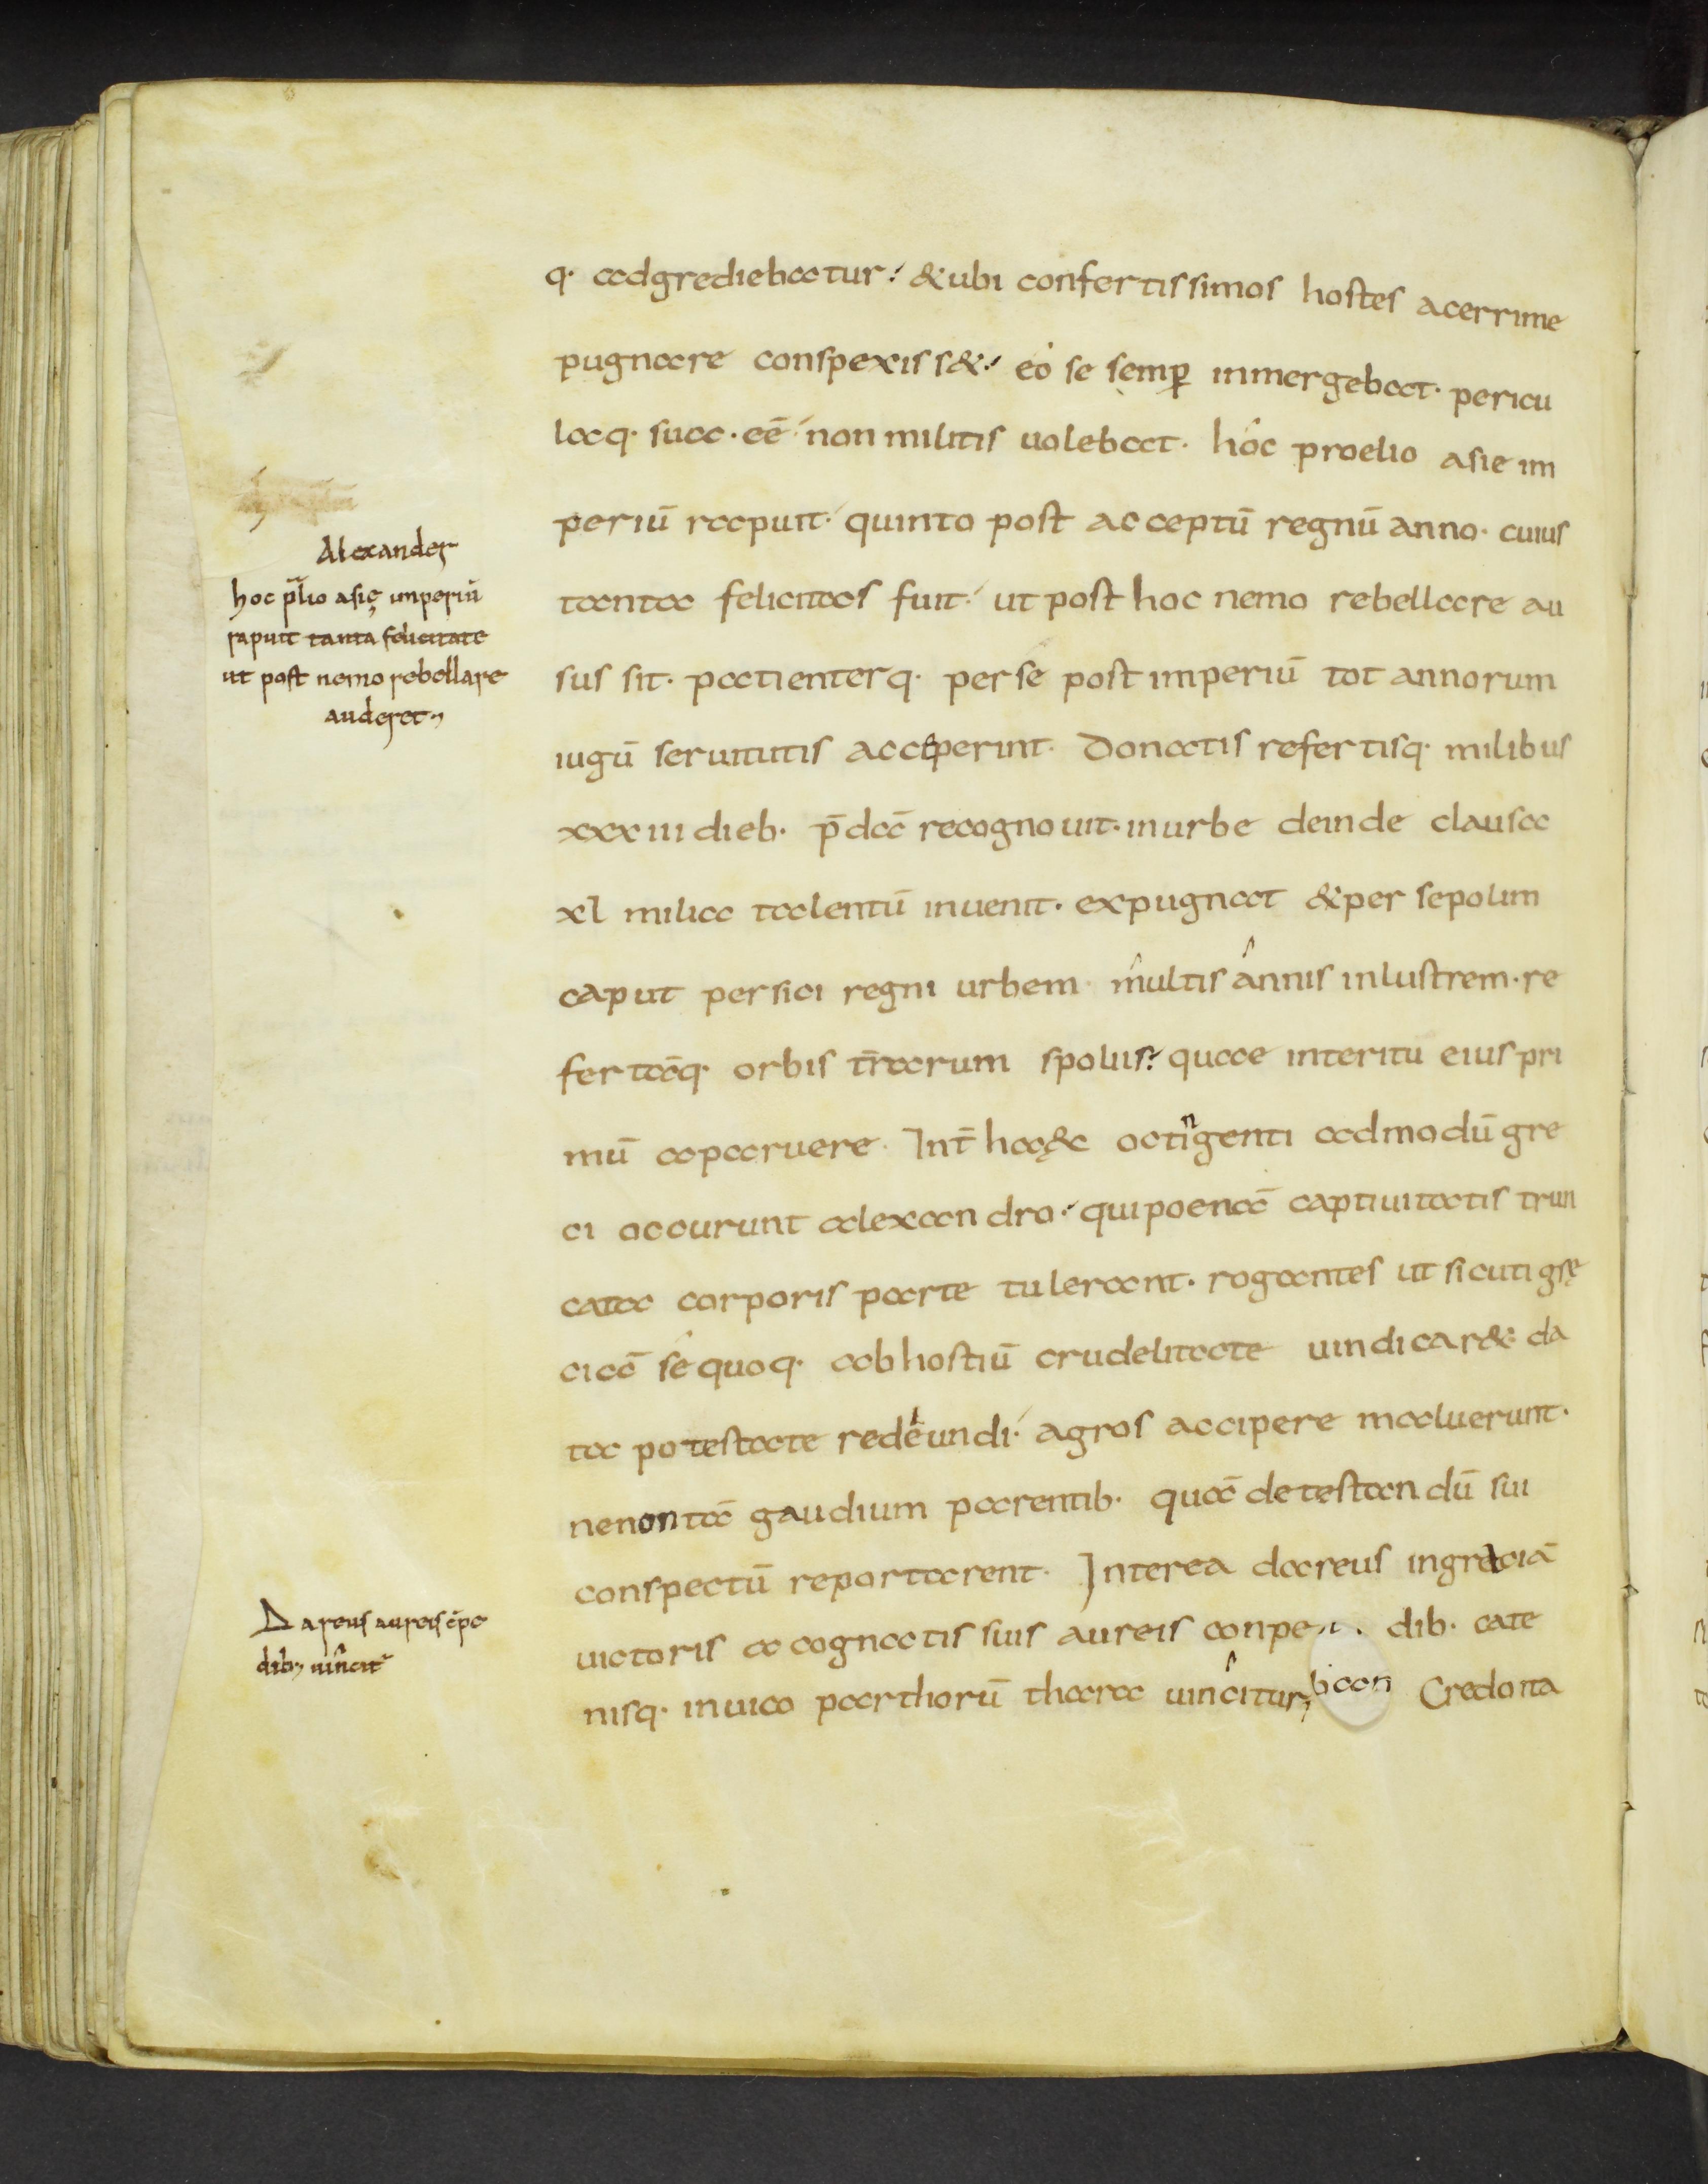 q· adgrediebatur· & ubi confertissimos hostes acerrime
pugnare conspexiss&· eo se semp̄ inmergebat· pericu
laq· sua· eē non militis uolebat· hoc proelio asie im
periū rapuit· quinto post acceptū regnū anno· cuius
tanta felicitas fuit· ut post hoc nemo rebellare au
sus sit· patienterq· perse post imperiū tot annorum
iugū seruitutis acceperint· Donatis refertisq· milibus
xxxiiii dieb· p̄dā recognouit· in urbe deinde clausa
xl milia talentū inuenit· expugnat & persepolim
caput persici regni urbem multis annis inlustrem· re
fertāq· orbis t̄rarum spoliis· quae interitu eius pri
mū aparuere· Int̄ haęc octingenti admodū gre
ci occurunt alexandro· qui poenā captiuitatis trun
cata corporis parte tulerant· rogantes ut sicuti grę
ciā se quoq· ab hostiū crudelitate uindicar& da
ta potestate redeundi· agros accipere maluerunt·
ne non tā gaudium parentib· quā detestandū sui
conspectū reportarent· Interea dareus in greciā
uictoris a cognatis suis aureis conpe dib· cate
nisq· in uico parthorū thara uincitur, Credo ita
Alexander
hoc p̄lio asię imperiū
rapuit tanta felicitate
ut post nemo rebellare
auderet
Dareus aureis cp̄e
dib; uincit̄